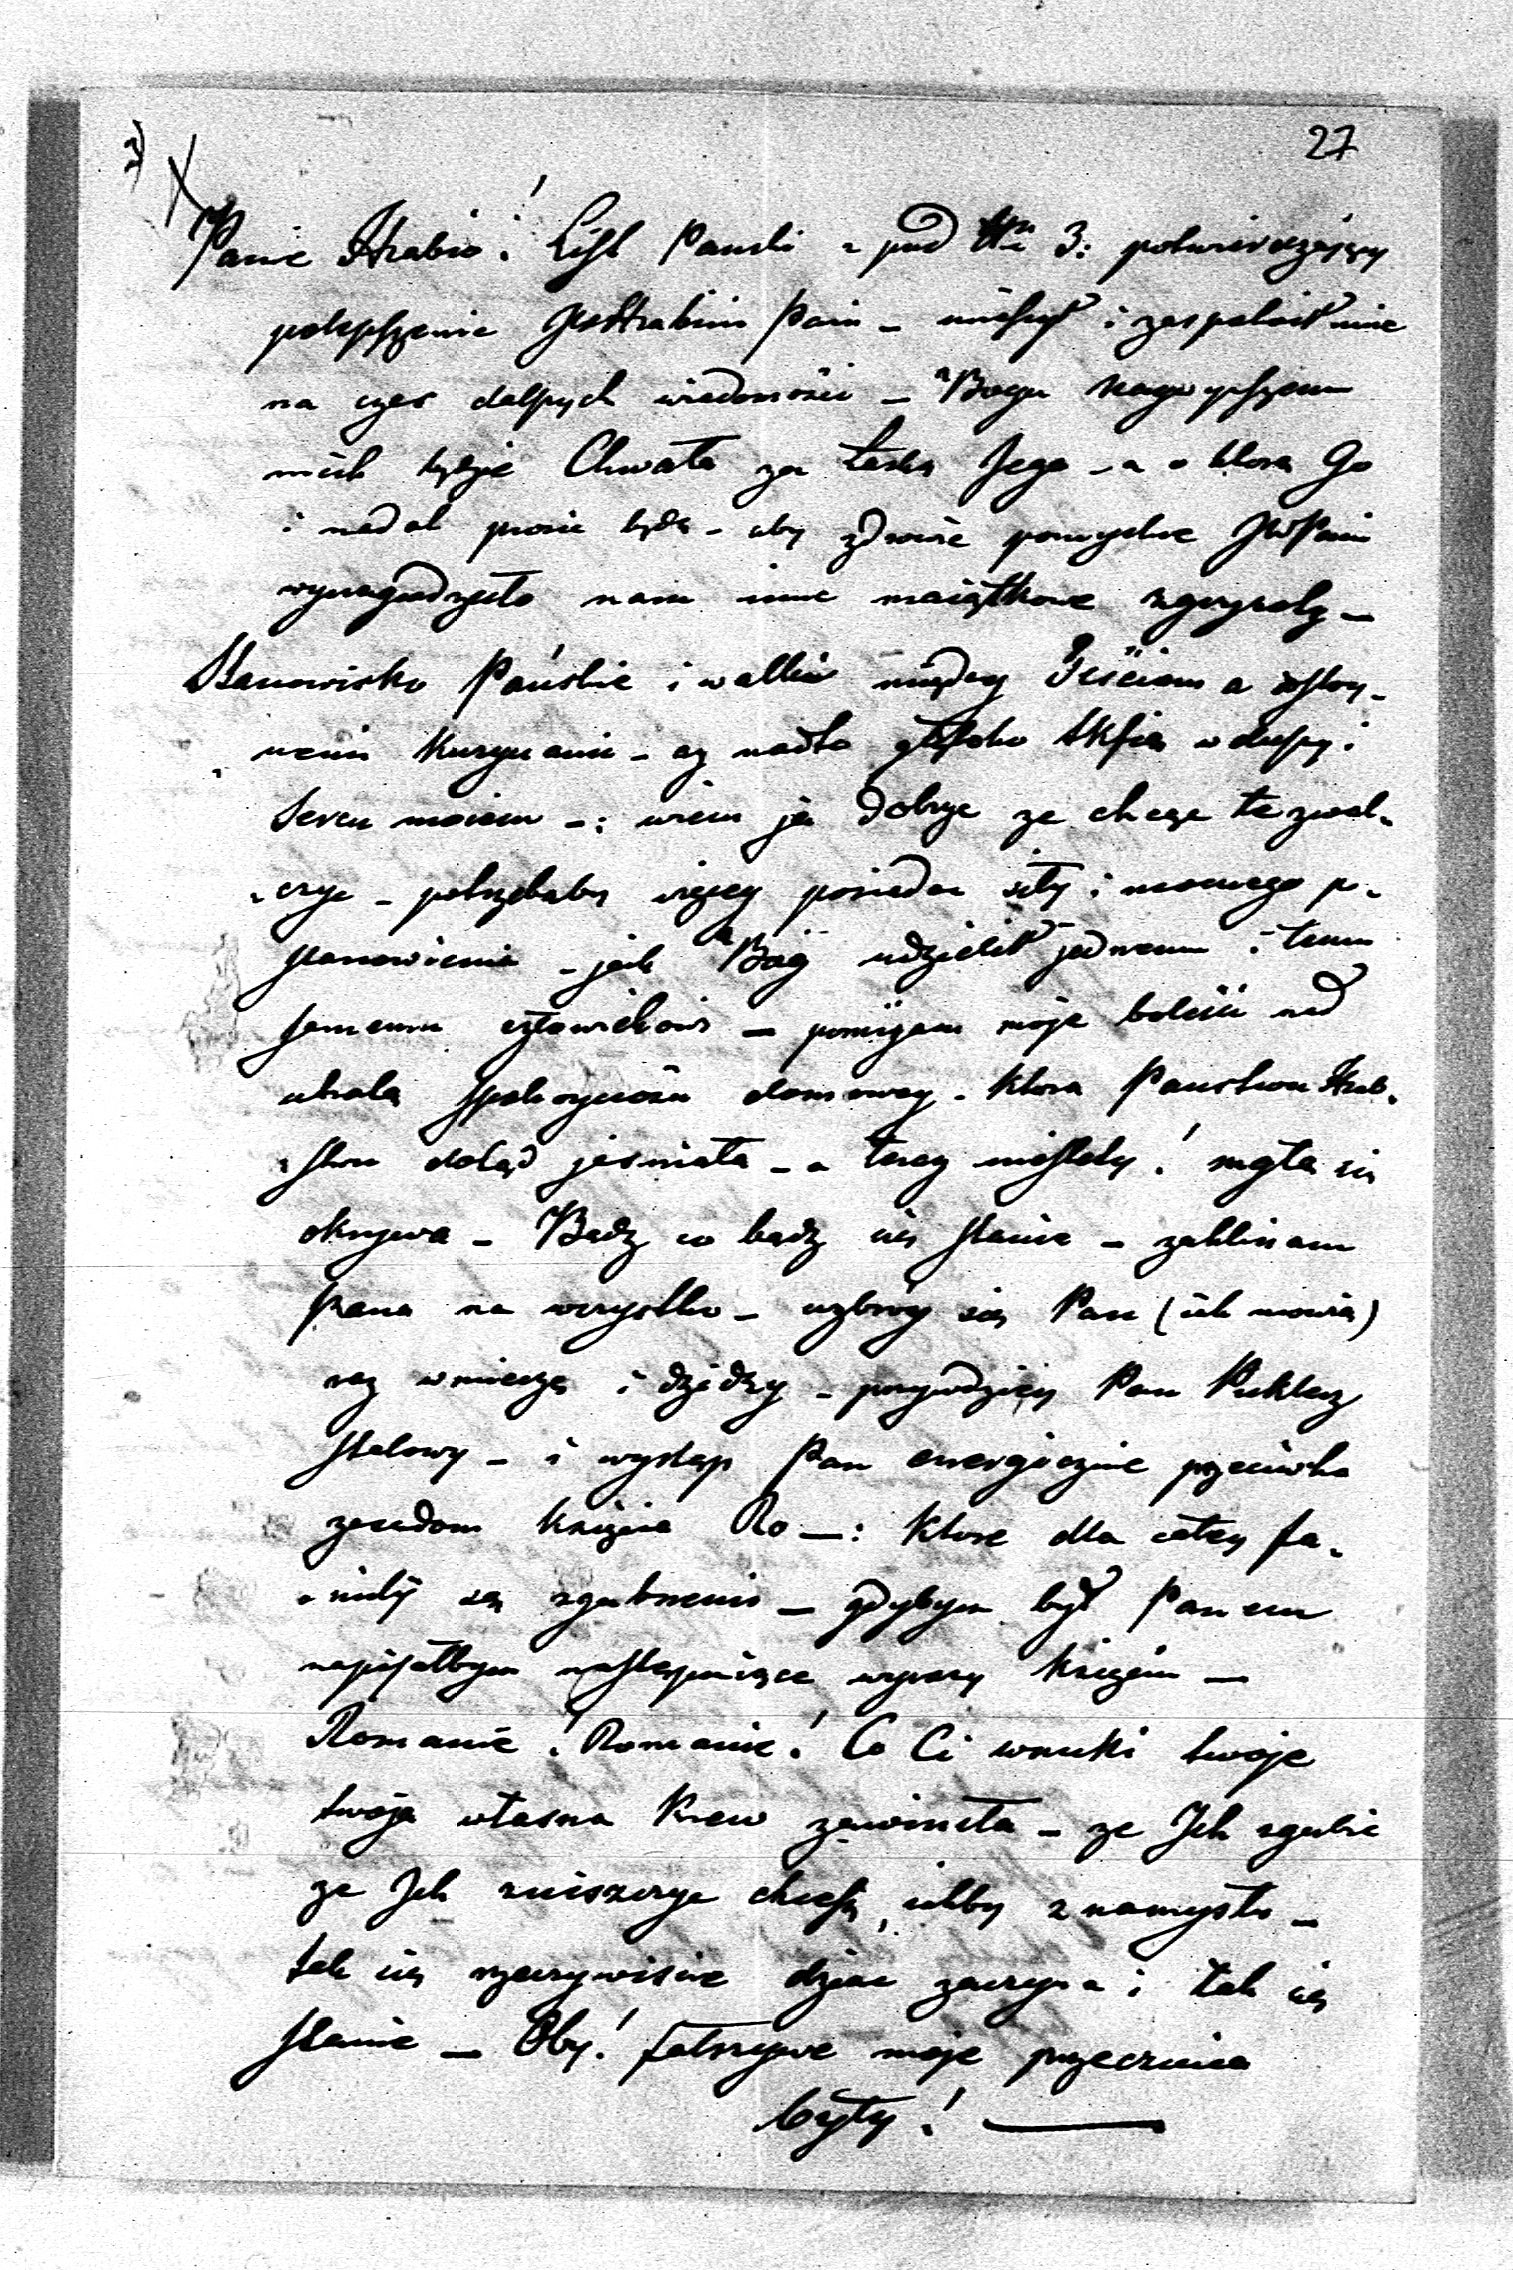 27
Panie Hrabio! List Panski z pod Nr 3: potwierdzaiący
polepszenie JWHrabini Pani – ucieszył i zaspokoił mnie
na czas dalszych wiadomości – Bogu Naywyższemu
niech będzie Chwała za Łaskę Jego – a o ktorą Go
i nadal prosic będę – aby zdrowie pomyslne JWPani
wynagrodzało nam inne maiątkowe zgryzoty –
Stanowisko Pańskie i walka między Teściem a
Kuzynami – az nadto głęboko tkfią w duszy i
Sercu moiem –: wiem ja dobrze ze chcąc te zwal-
-czyc – potrzebaby więcey posiadac siły i mocnego po-
stanowienia – jak Bóg udzielił jednemu i temu
samemu człowiekowi – pomijam moje boleść nad
utratą spokoyności domowey – ktora Panstwu Hrab-
-stwu dotąd jasniała – a teraz niestety! mgłą się
okrywa – Bądz co bądz się stanie – zaklinam
Pana na wszystko – uzbrój się Pan (iak mowią)
raz w miecze i dzidzy – przywdziey Pan Puklerz
stalowy – i wystąp Pan energicznie przeciwko
zasadom księcia Ro–: ktore dla całey fa-
-milij są zgubnemi – gdybym był Panem
napisałbym następuiące wyrazy Księciu –
Romanie! Romanie! Co Ci wnuki twoje
twoja własna Krew zawiniła – ze Ich zgubic
ze Ich zniszczyc chcesz iakby z namysłu –
tak się rzeczywiscie dziac zaczyna i tak się
stanie – Oby! fałszywe moje przeczucia
były! –